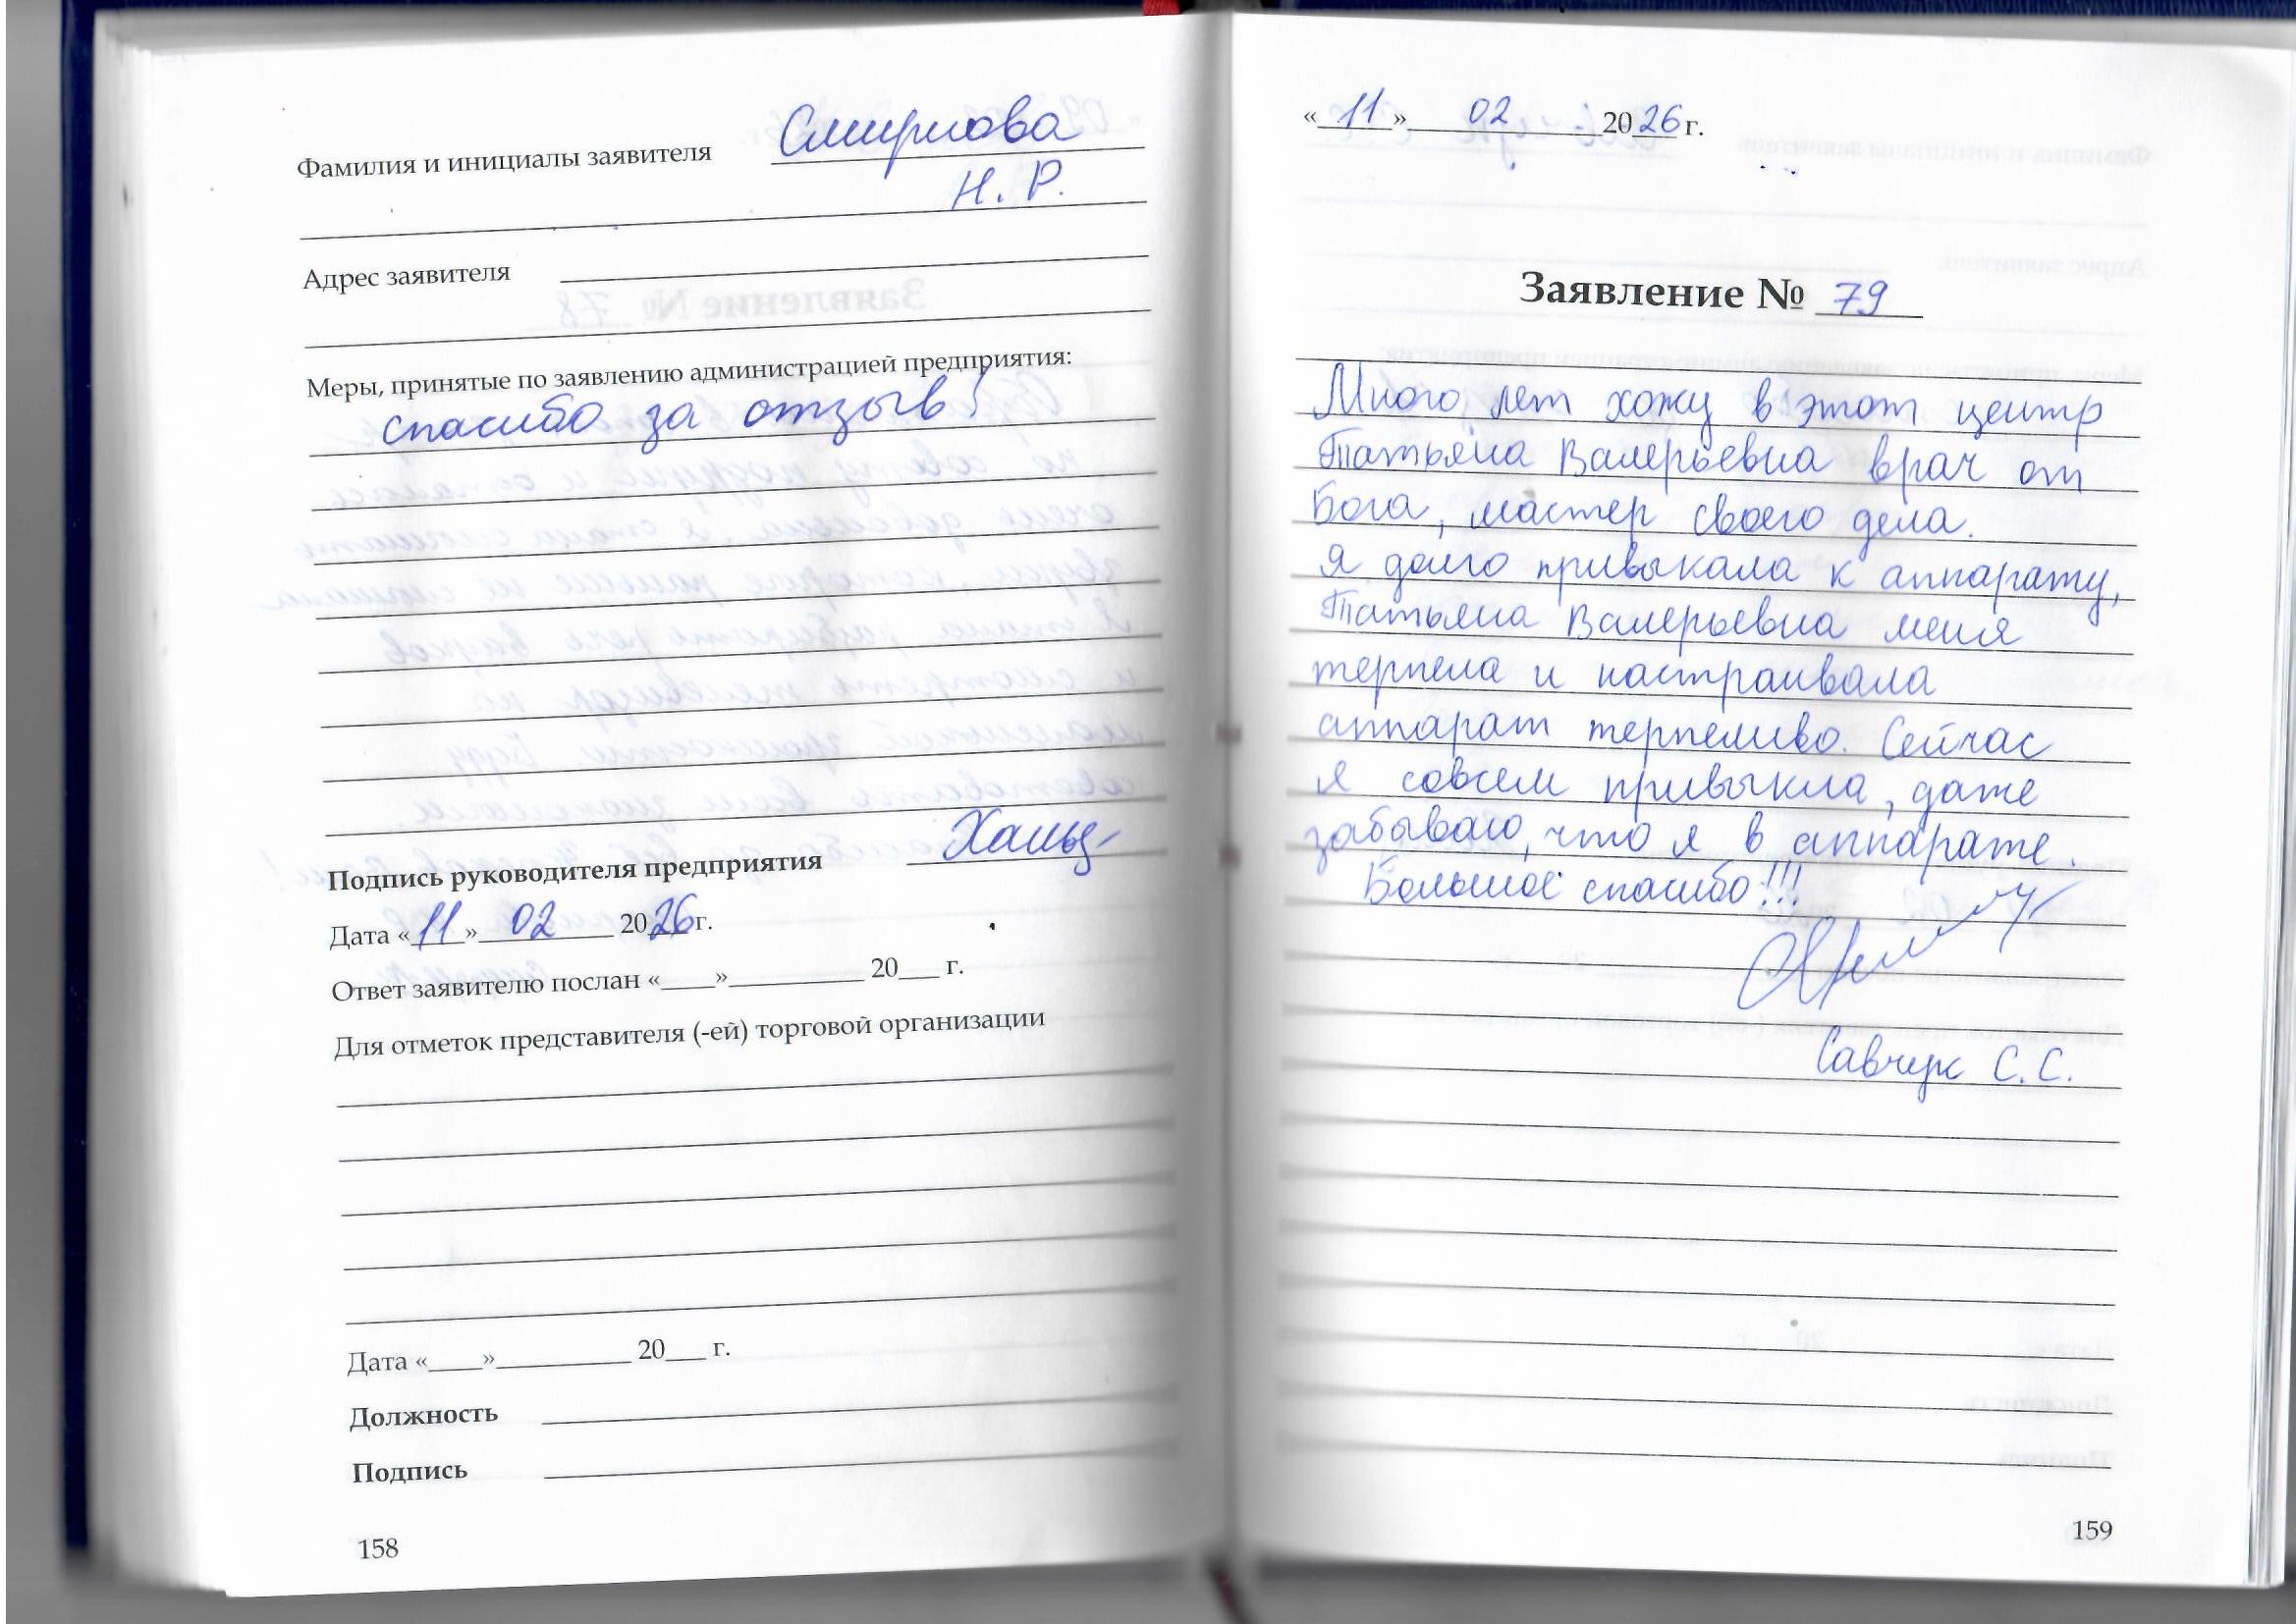 Фамилия и инициалы заявителя Смирнова
Н. Р.
Адрес заявителя
Меры, принятые по заявлению администрацией предприятия:
спасибо за отзыв!
Подпись руководителя предприятия
Дата «11» 02 2026 г.
Ответ заявителю послан «____»__________ 20___ г.
Для отметок представителя (-ей) торговой организации
Дата «____»__________ 20___ г.
Должность
Подпись
158
«11» 02 2026 г.
Заявление № 79
Много лет хожу в этот центр
Татьяна Валерьевна врач от
Бога, мастер своего дела.
Я долго привыкала к аппарату,
Татьяна Валерьевна меня
терпела и настраивала
аппарат терпеливо. Сейчас
я совсем привыкла, даже
забываю, что я в аппарате.
Большое спасибо!!!
Савчук С. С.
159